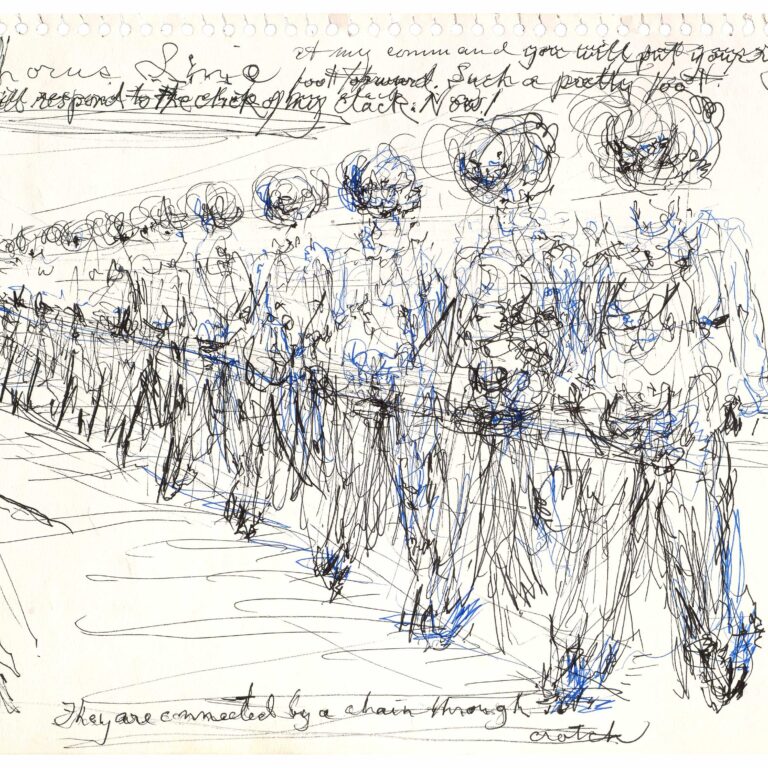 at my command you will put your
horus Line foot forward. Such a pretty foot.
ill respond to the click of my clack. Now!
They are connected by a chain through
crotch